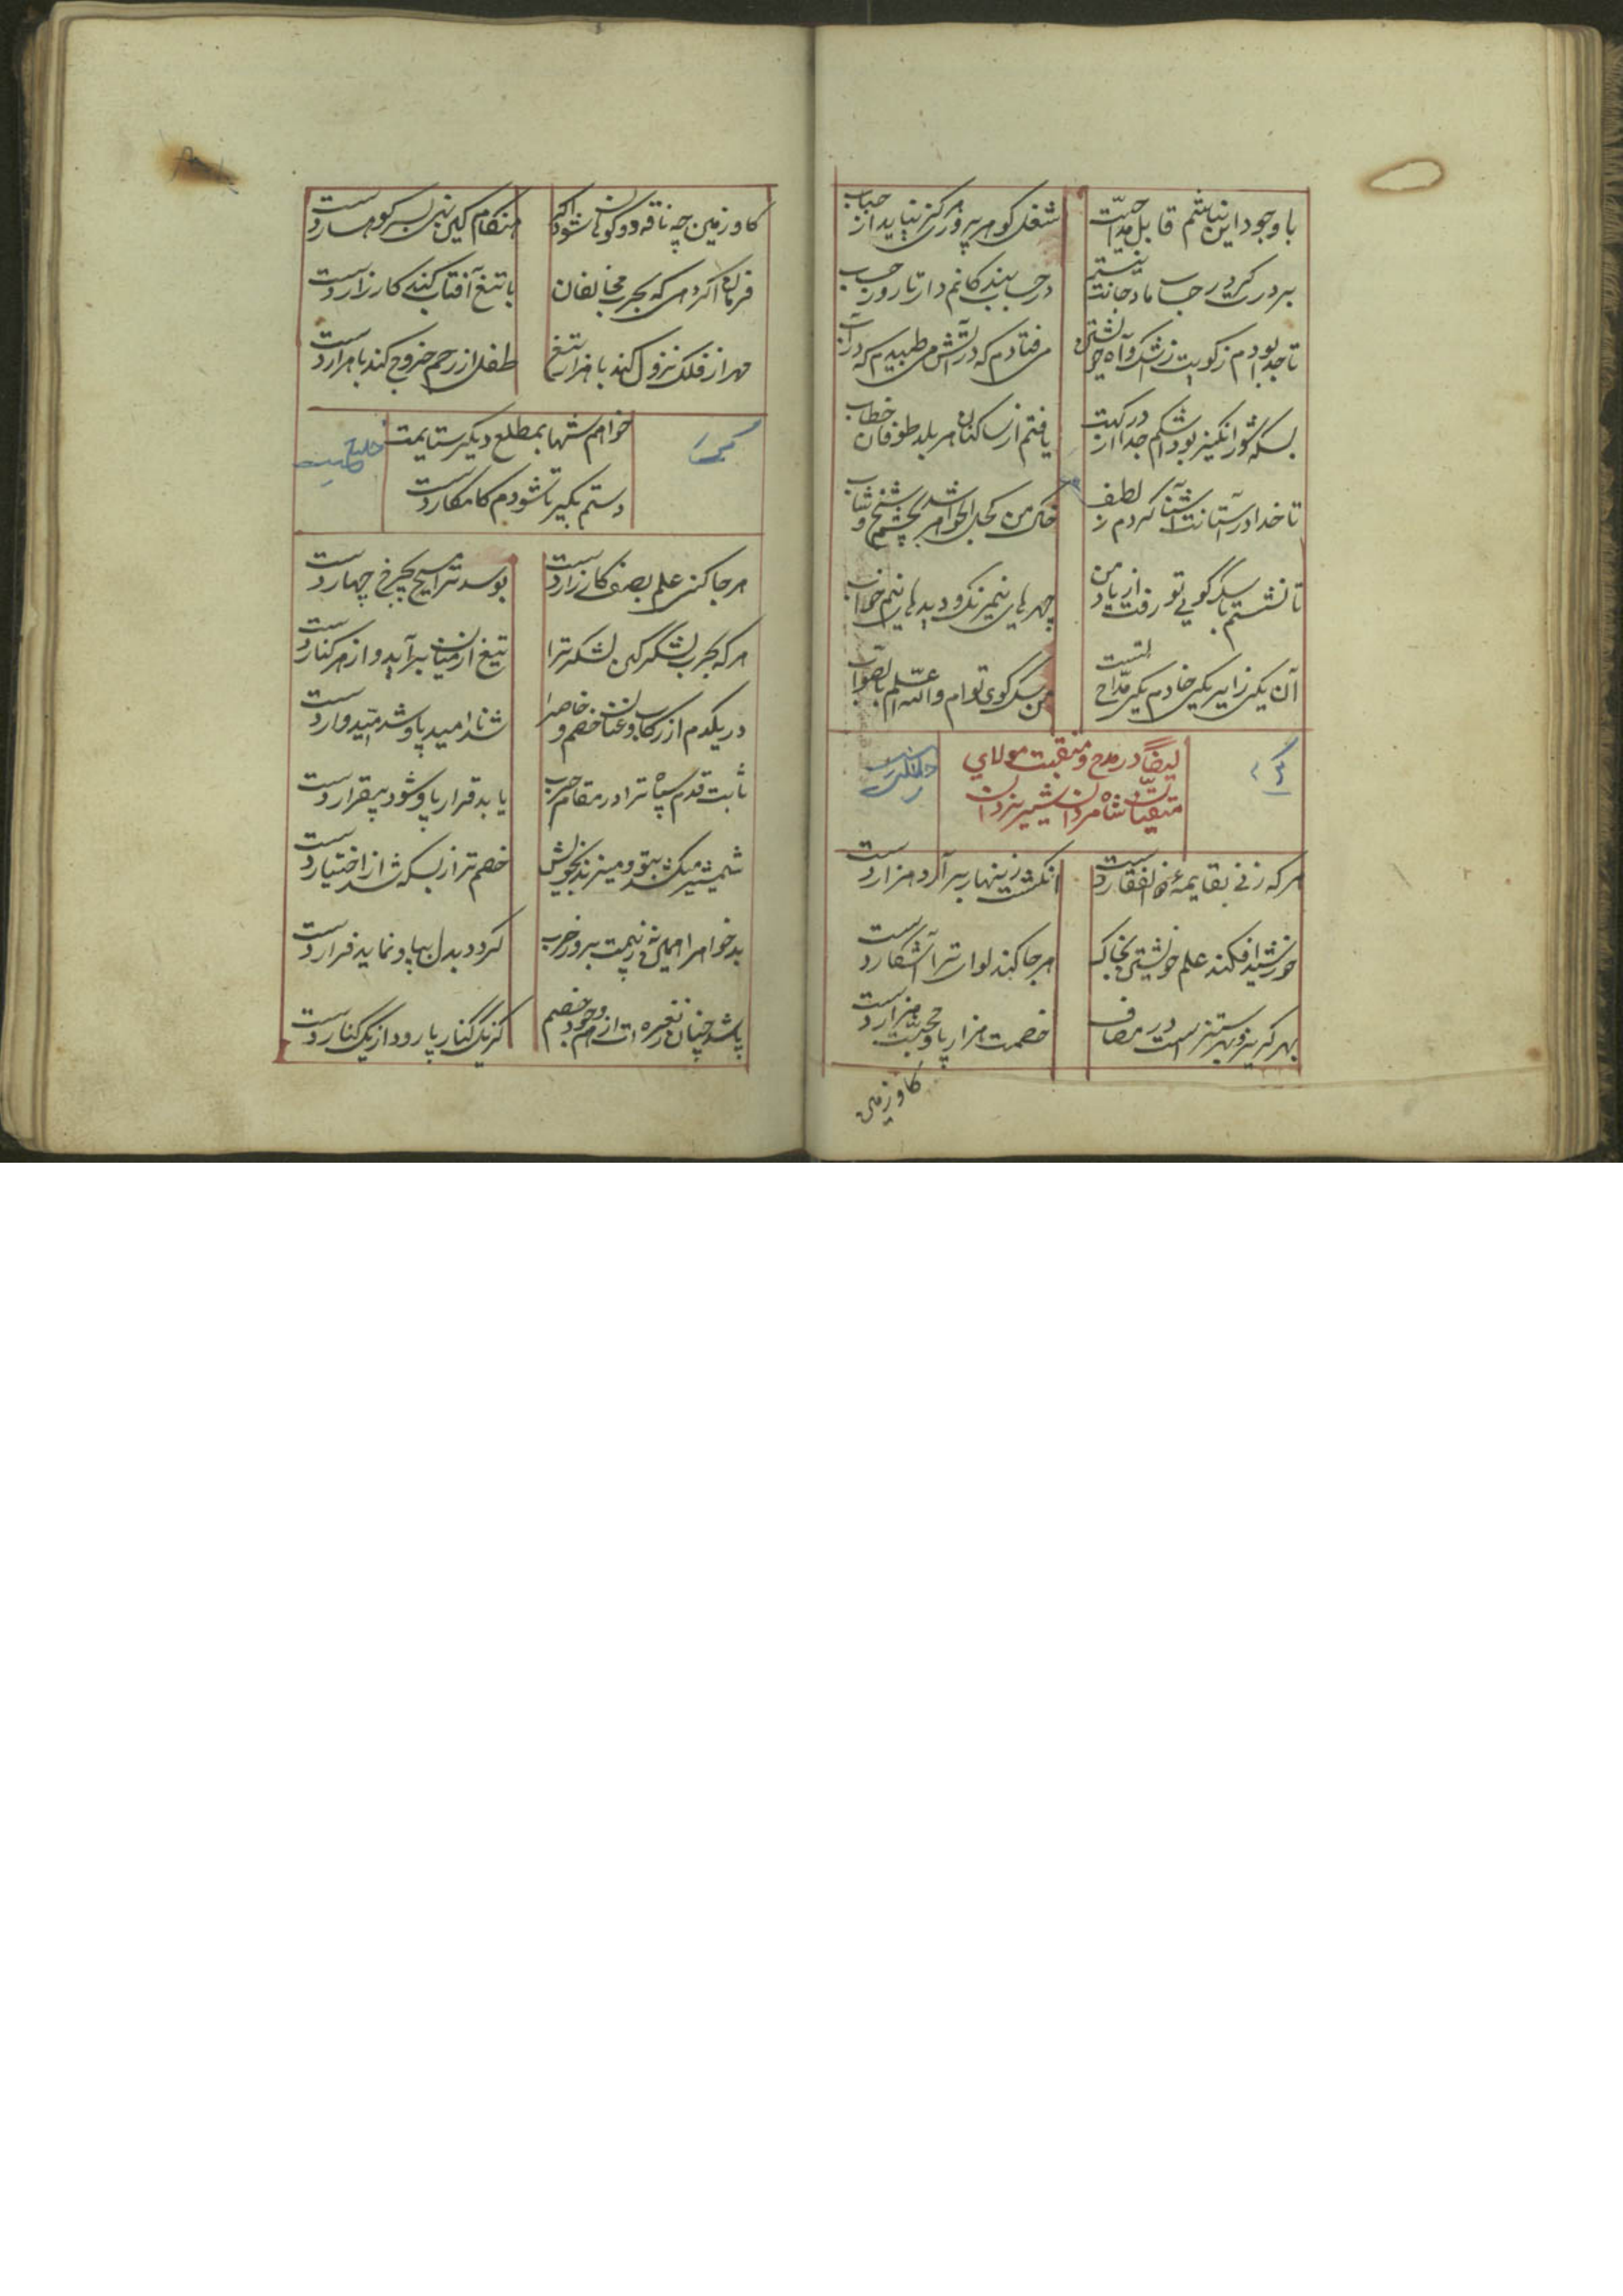 با وجود این نیستم قابل مدّاحیت
شغل گوهرپرور هرگز نیاید از حباب
بر درت گر در حساب مادحانت نیستم
در حساب بندگانم دار تا روز حساب
تا جدا بودم ز کویت ز اشک و آه خویشتن
می فتادم که در آتش می طپیدم که در آب
بسکه شورانگیز بود اشکم جدا از درگهت
یافتم از ساکنان هر بلد طوفان خطاب
تا خدا در آستانت آشنا کردم ز لطف
خاک من کحل الجواهر شد بچشم شیخ و شاب
تا نشستم با سگ کوی تو رفت از یاد من
چهرهای نیم رنگ و دیدهای نیم خواب
آن یکی زایر یکی خادم یکی مدّاح تست
من سگ کوی توام والله اعلم بالصواب
ایضاً در مدح و منقبت مولای
متقیان شاه مردان شیر یزدان
هر که زنی بقایمهٔ ذوالفقار دست
انگشت زینهار برآرد هزار دست
خورشید افکند علم خویشتن بخاک
هر جا کند لوای ترا آشکار دست
بهر گریز و بهر ستیز است در مصاف
خصمت هزار پا و محبّت هزار دست
کاو زمین
کاو زمین چه ناقه دو کوهان شود اگر
هنگام کین نهی بسر کوهسار دست
فرمان اگر دهی که بحرب مخالفان
با تیغ آفتاب کند کارزار دست
مهر از فلک نزول کند با هزار تیغ
طفل از رحم خروج کند با هزار دست
خواهم شها بمطلع دیگر ستایمت
دستم بگیر تا شودم کامکار دست
هر جا کنی علم بصف کارزار دست
بوسد ترا مسیح بچرخ چهار دست
هر که بحرب لشگر کین لشکر ترا
تیغ از میان برآید و از هر کنار دست
در یکدم از رکاب و عنان خصم و خاصه را
شد ناامید پا و شد امیدوار دست
ثابت قدم سپاه ترا در مقام حرب
یابد قرار پا و شود بیقرار دست
شمشیر میکشد بتو و میزند بخویش
خصم ترا ز بسکه شد از اختیار دست
بدخواه را همین نه هزیمت بروز حرب
گردد بدل بپا و نماید فرار دست
پاشد چنان ز نعره ات از هم وجود خصم
کز یک کنار پا رود از یک کنار دست